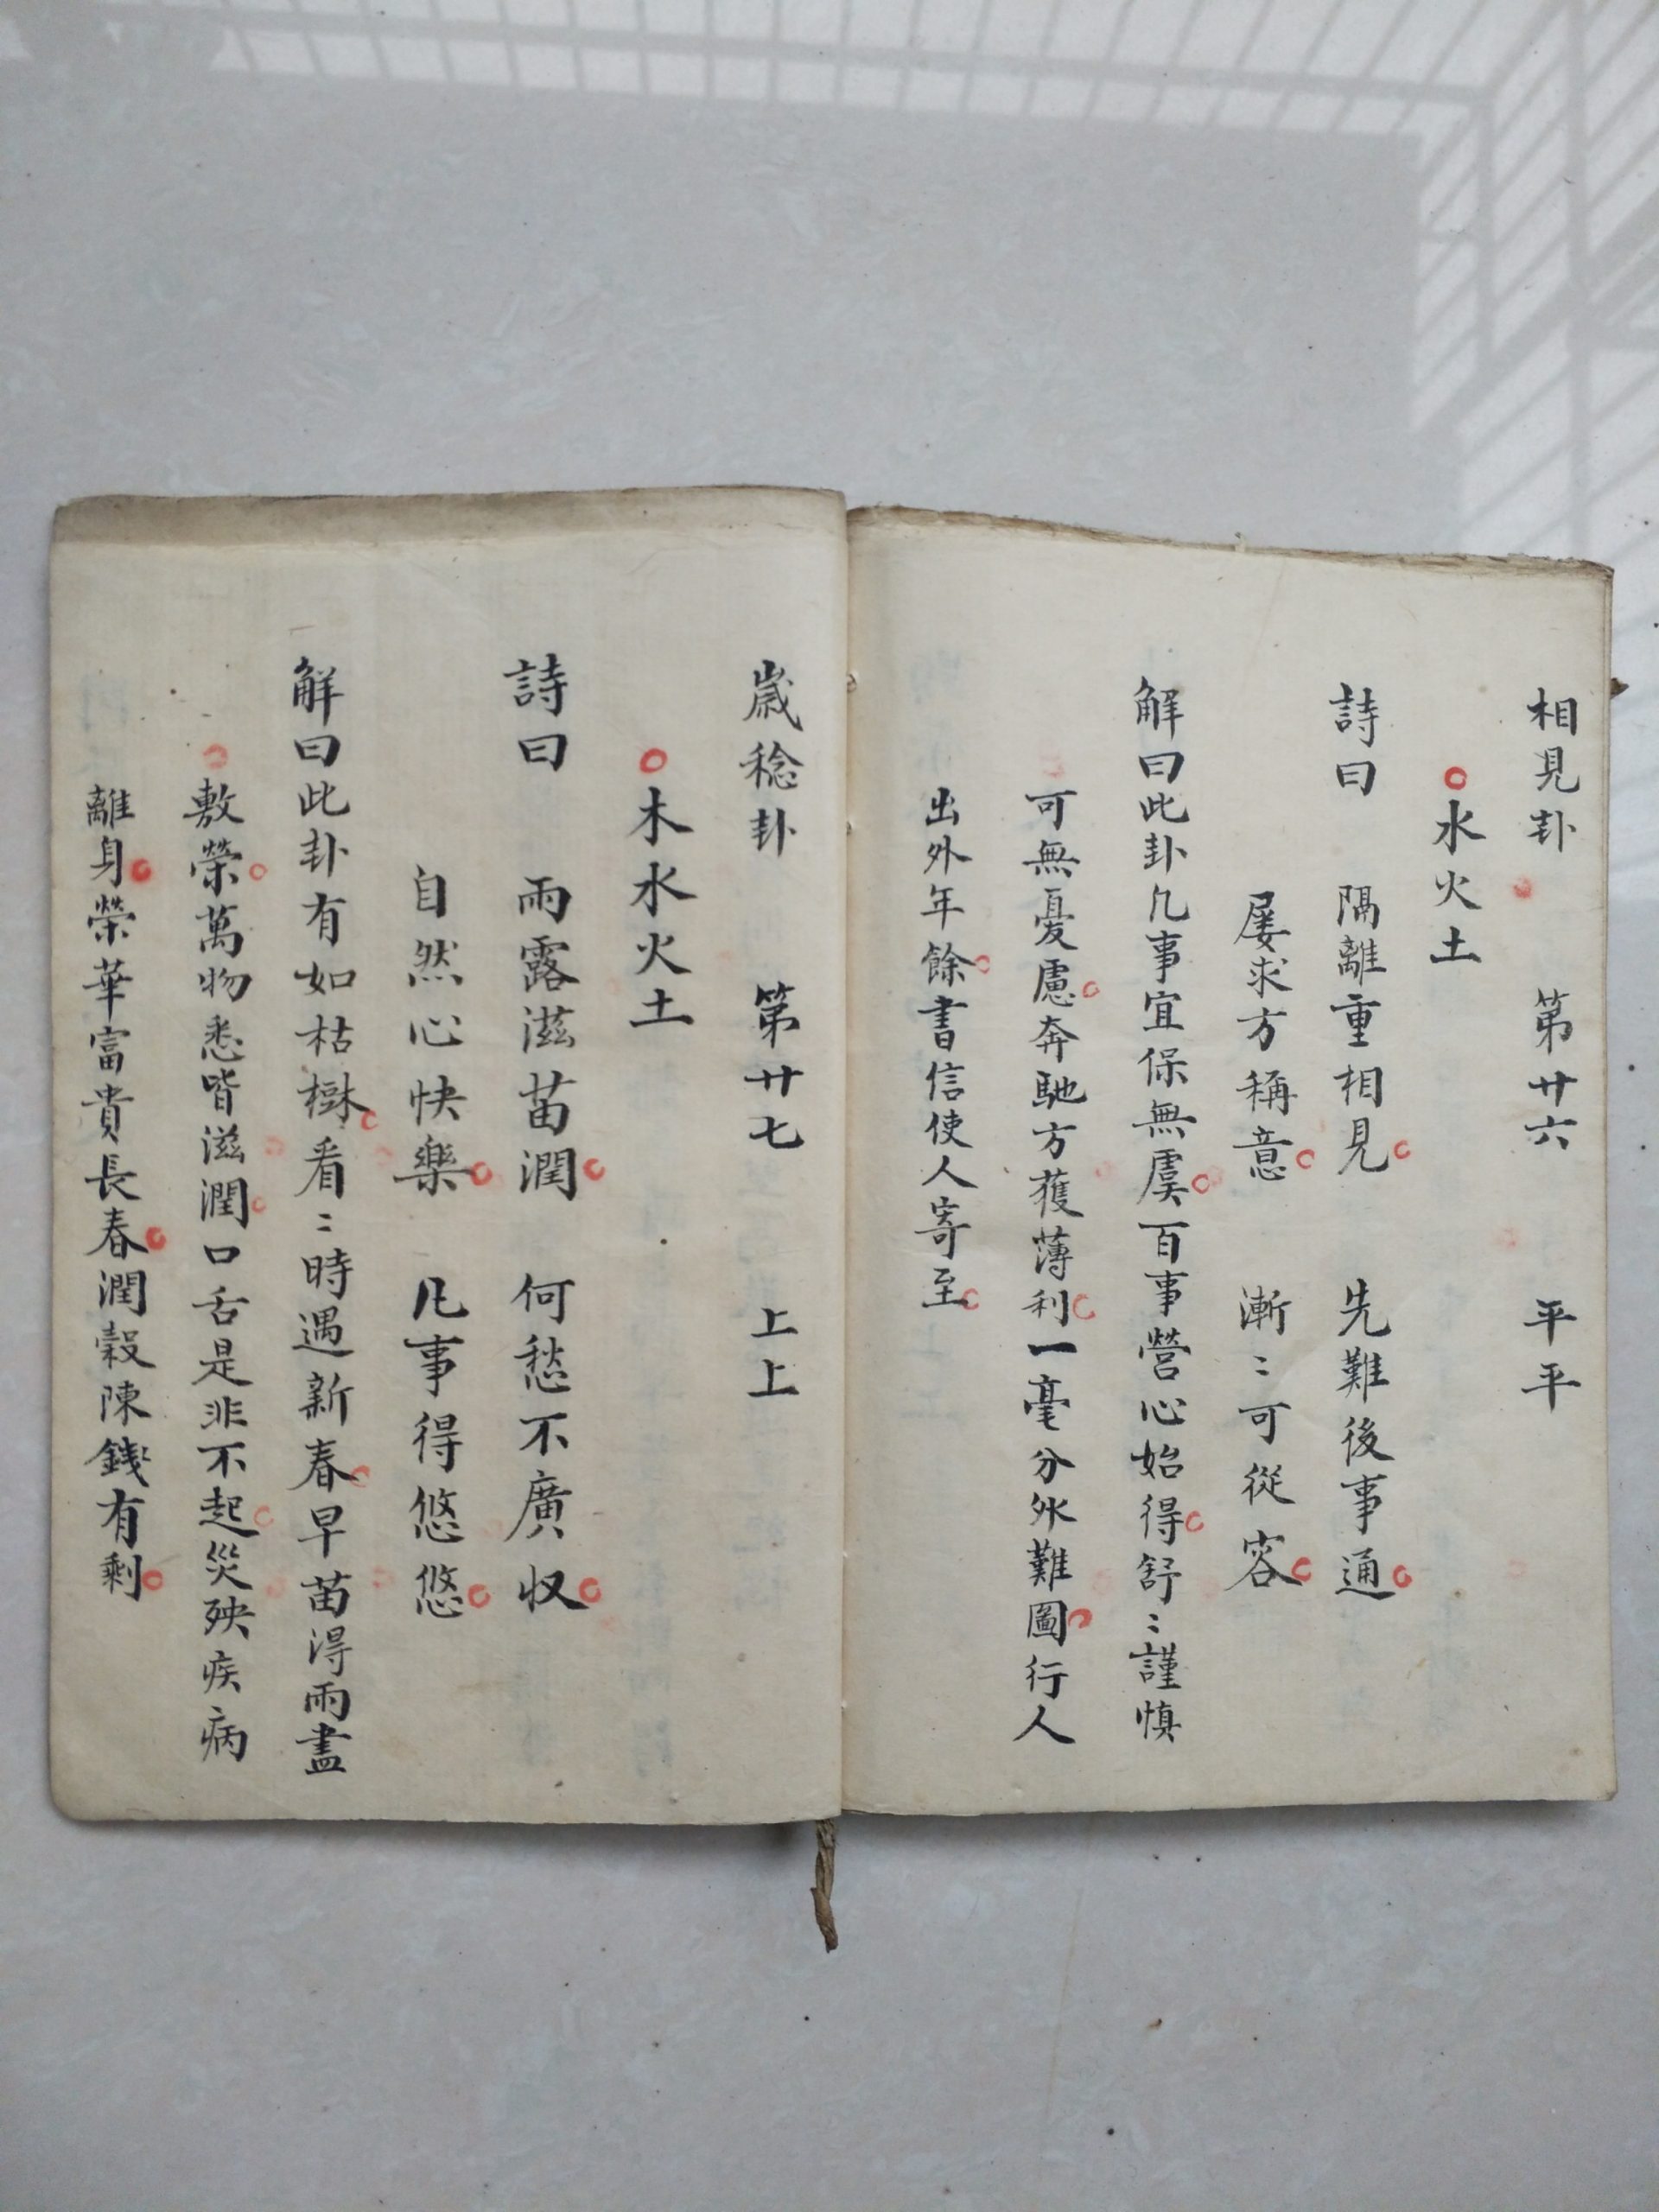 相見卦　第廿六　平平
水火土
詩曰　隔離重相見　先難後事通
屡求方稱意　漸〻可從容
解曰此卦凡事宜保無虞百事營心始得舒〻謹慎
可無憂慮奔馳方獲薄利一毫分外難圖行人
出外年餘書信使人寄至
歲稔卦　第廿七　上上
木水火土
詩曰　雨露滋苗潤　何愁不廣収
自然心快樂　凡事得悠悠
解曰此卦有如枯樹看〻時遇新春早苗得雨盡
敷榮萬物悉皆滋潤口舌是非不起災殃疾病
離身榮華富貴長春潤穀陳錢有剩